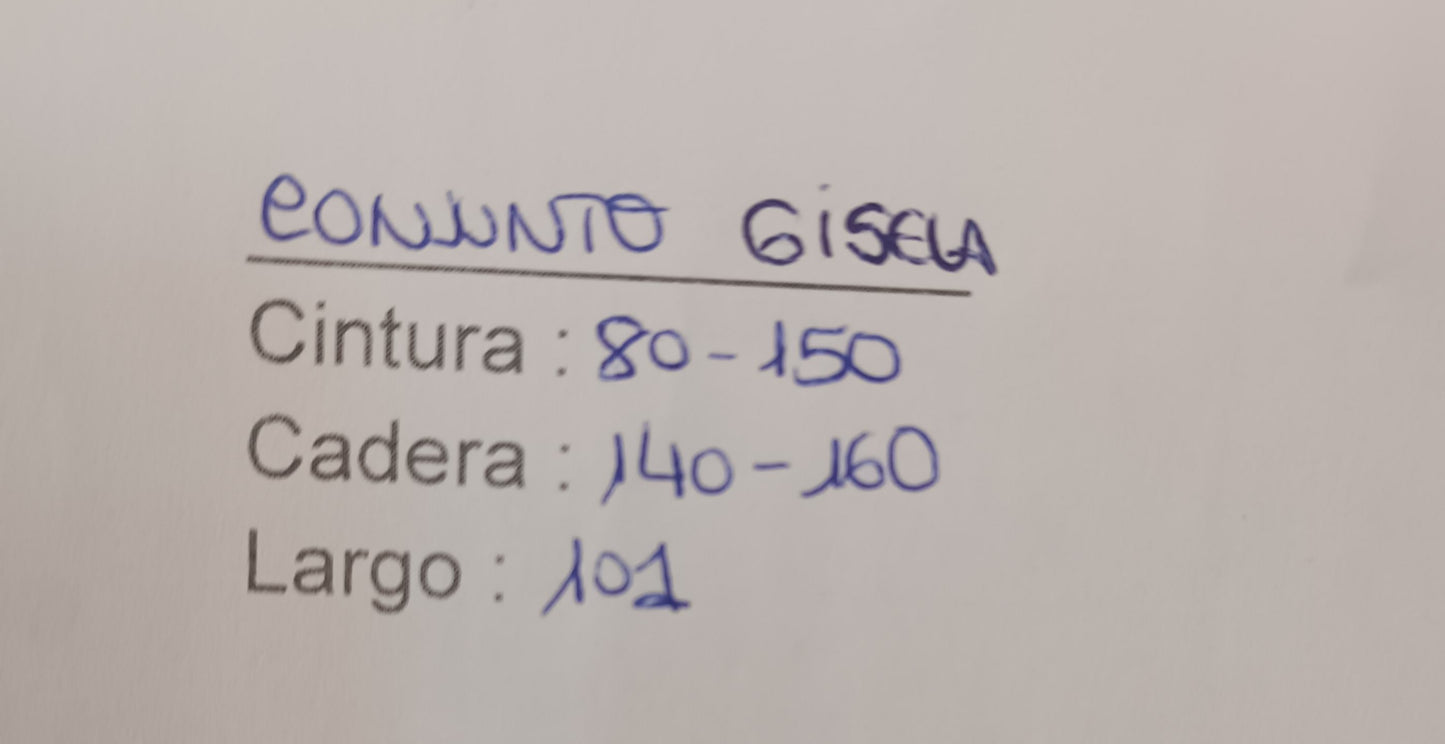 CONJUNTO GiSELA
Cintura : 80-150
Cadera : 140-160
Largo : 101